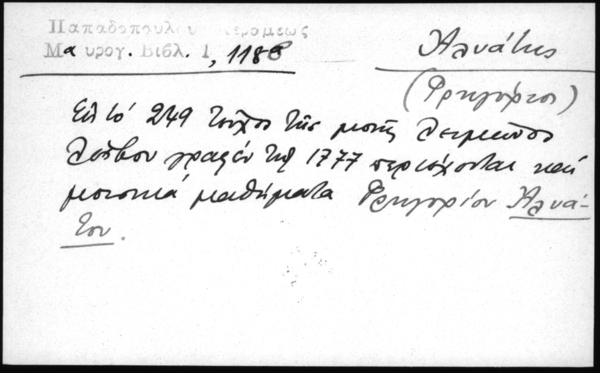 Παπαδοπούλου Κεραμέως
Μαυρογ. Βιβλ. 1, 118
Ἀλυάτης
(Γρηγόριος)
Εἰς τό 249 τεῦχος τῆς μονῆς Λειμῶνος
Λέσβου γραφέν τῷ 1777 περιέχονται καί
μουσικά μαθήματα Γρηγορίου Ἀλυά-
του.